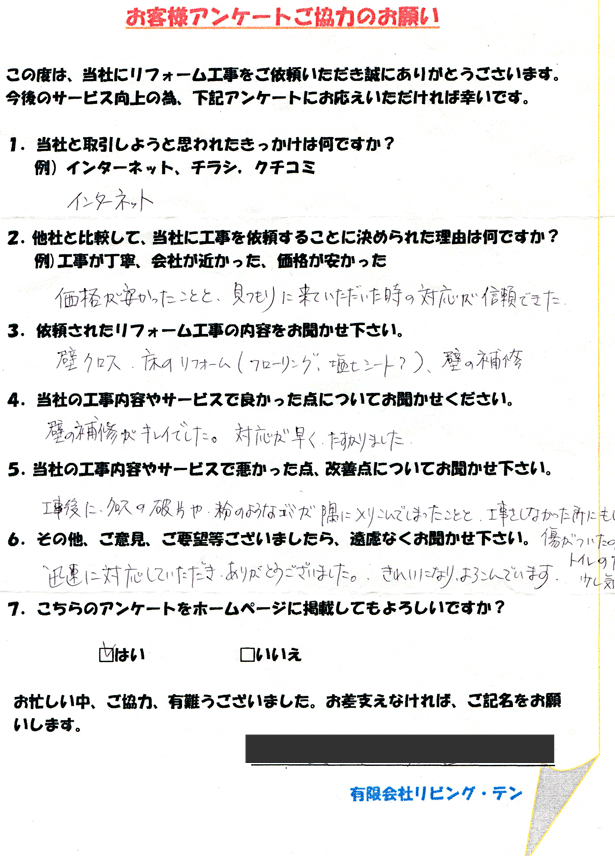 お客様アンケートご協力のお願い
この度は、当社にリフォーム工事をご依頼いただき誠にありがとうございます。
今後のサービス向上の為、下記アンケートにお応えいただければ幸いです。
1．当社と取引しようと思われたきっかけは何ですか？
例）インターネット、チラシ，クチコミ
インターネット
2．他社と比較して、当社に工事を依頼することに決められた理由は何ですか？
例）工事が丁寧、会社が近かった、価格が安かった
価格が安かったことと、見つもりに来ていただいた時の対応が信頼できた．
3．依頼されたリフォーム工事の内容をお聞かせ下さい。
壁クロス．床のリフォーム（フローリング、塩ビシート？）、壁の補修
4．当社の工事内容やサービスで良かった点についてお聞かせください。
壁の補修がキレイでした。対応が早く、たすかりました
5．当社の工事内容やサービスで悪かった点、改善点についてお聞かせ下さい。
工事後に、クロスの破片や、粉のようなゴミが隅に入りこんでしまったことと、工事をしなかった所にもし
6．その他、ご意見、ご要望等ございましたら、遠慮なくお聞かせ下さい。
傷がついたの
トイレの
少し気
迅速に対応していただき、ありがとうございました。きれいになり、よろこんでいます．
7．こちらのアンケートをホームページに掲載してもよろしいですか？
☑はい □いいえ
お忙しい中、ご協力、有難うございました。お差支えなければ、ご記名をお願
いします。
有限会社リビング・テン